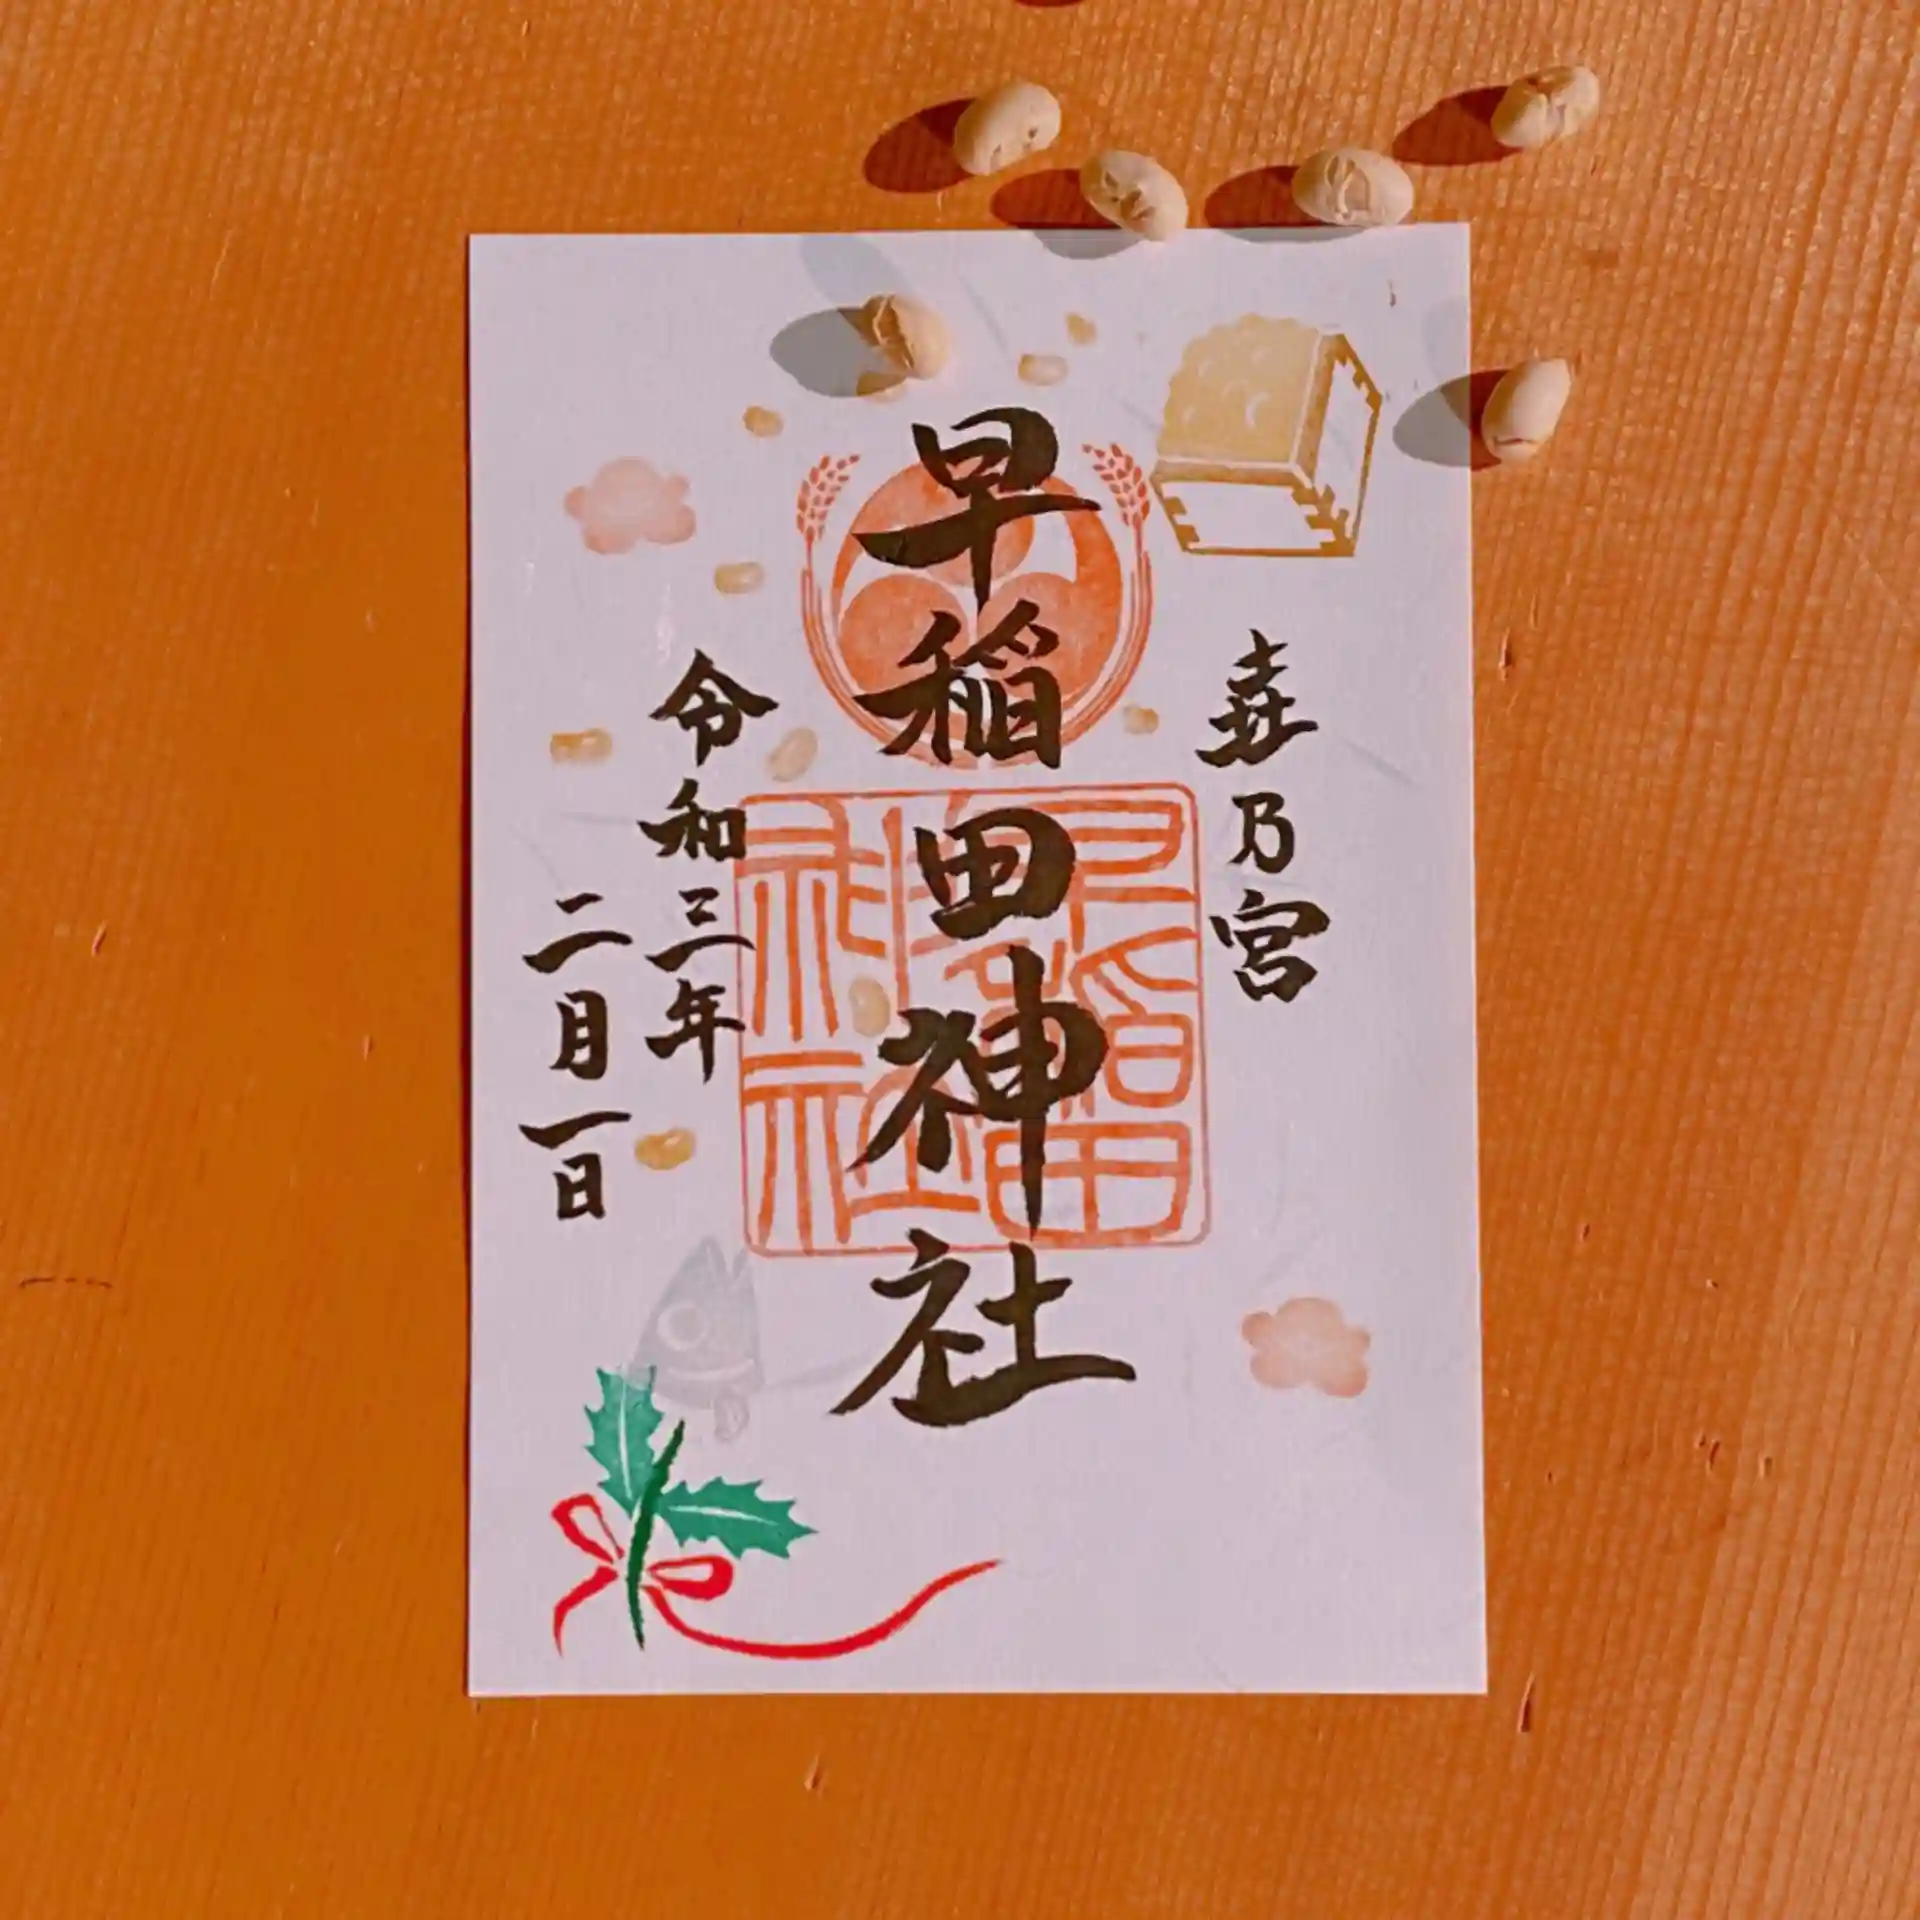 喜乃宮
早稲田神社
令和三年
二月一日
早稲田神社